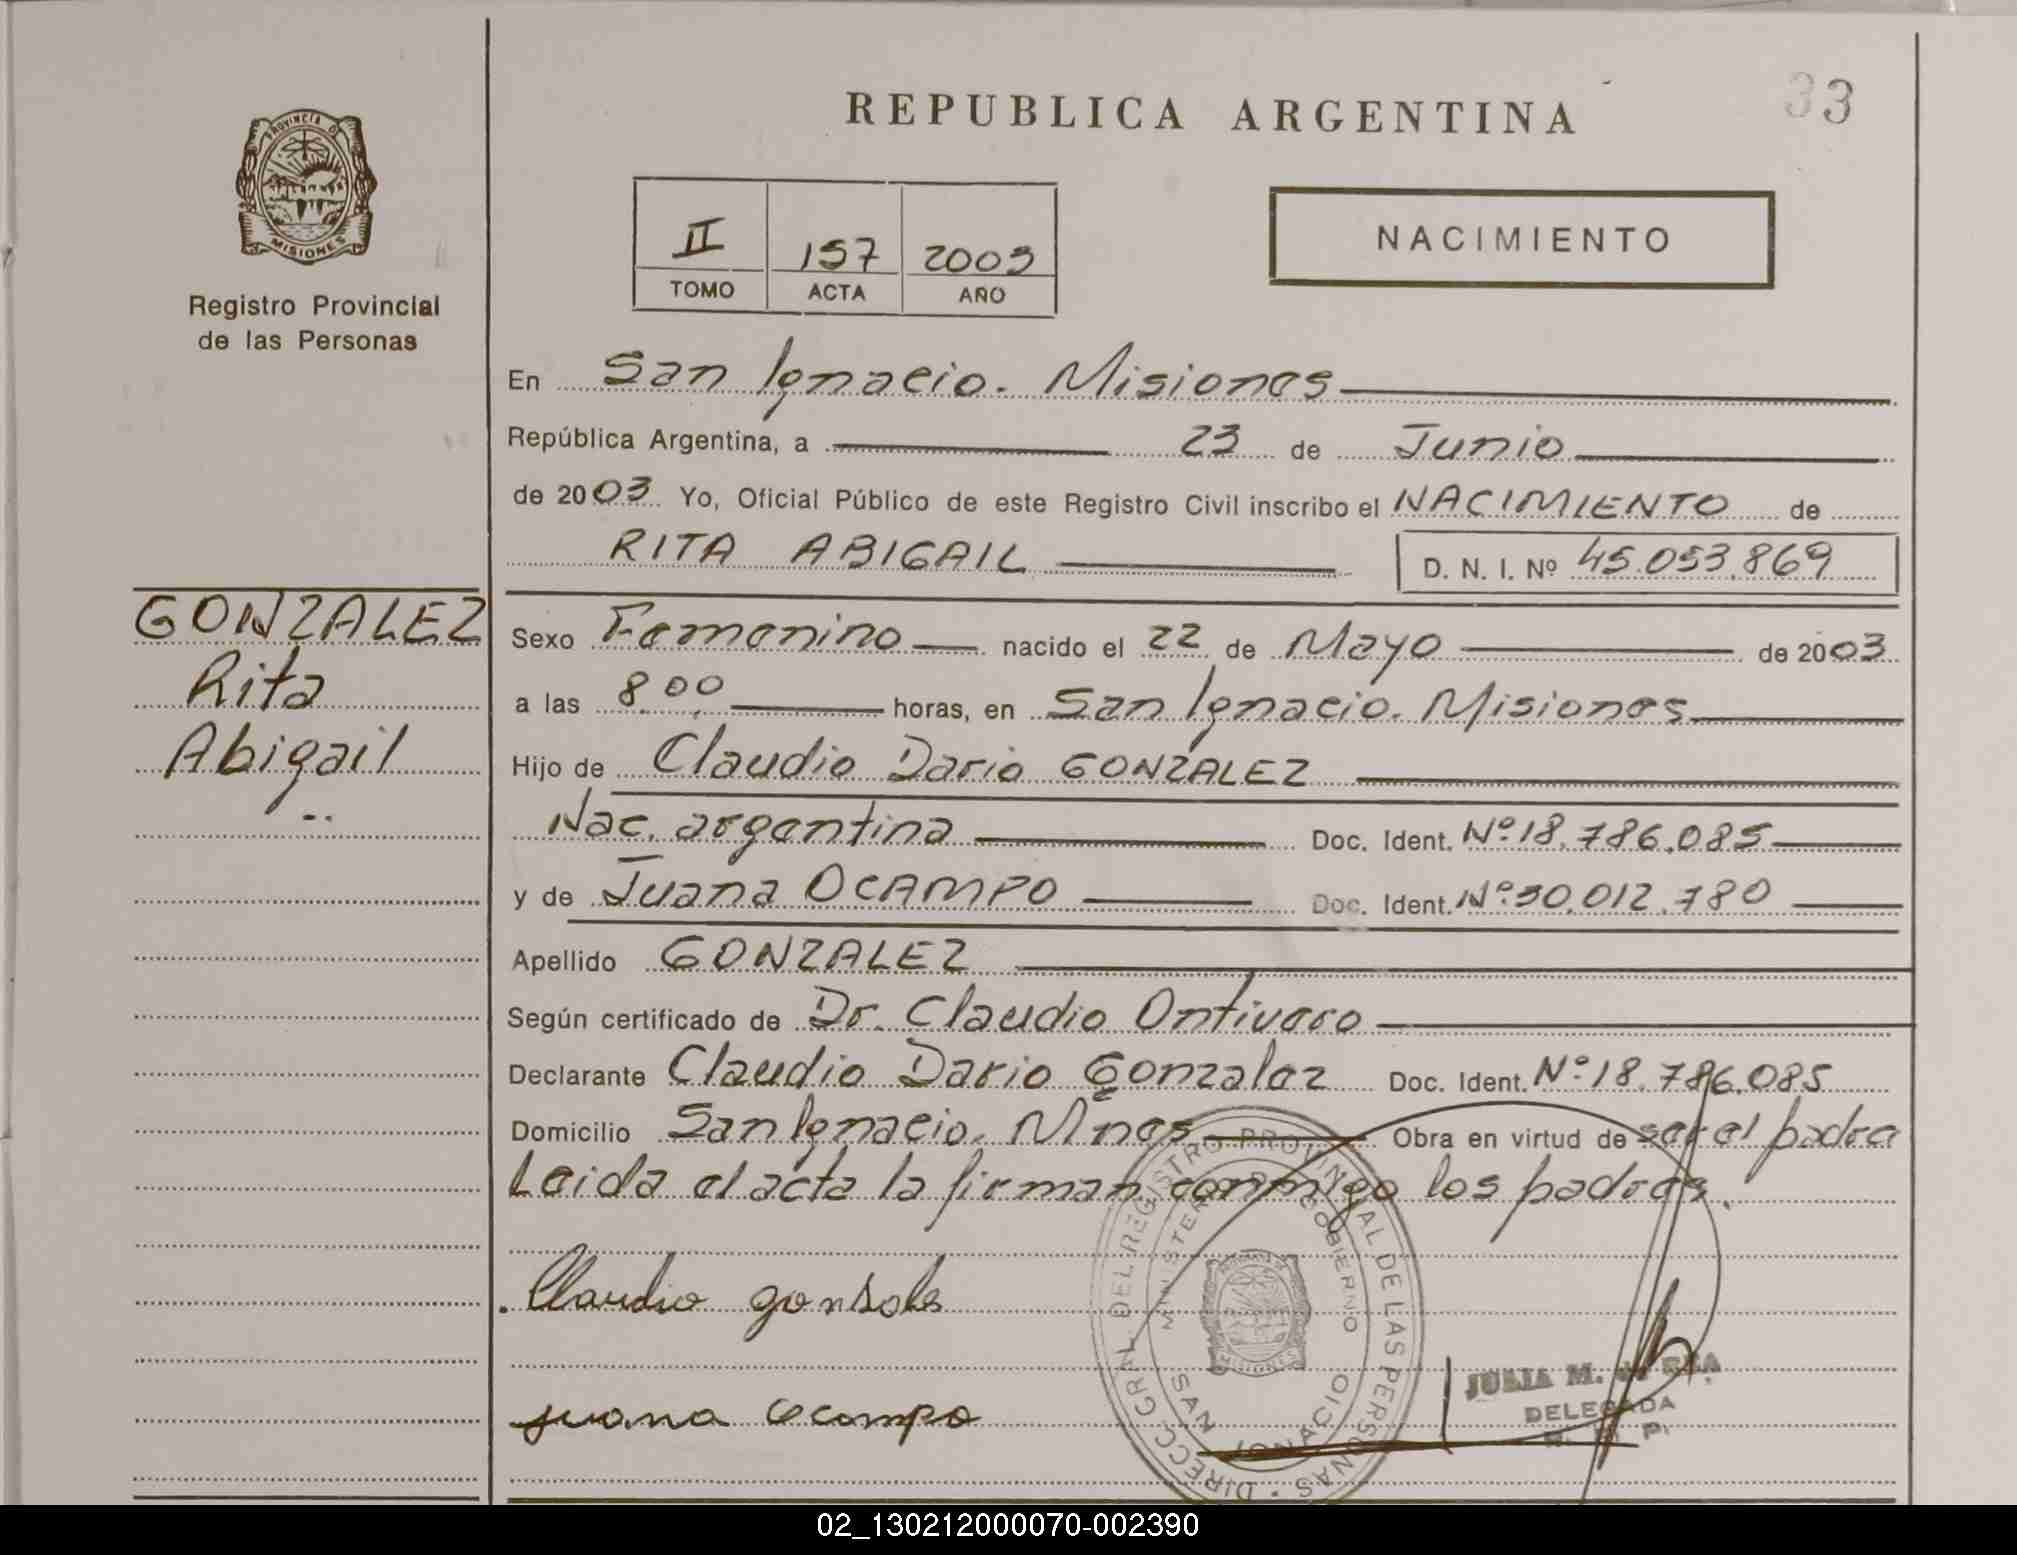 REPUBLICA ARGENTINA
33
PROVINCIA DE
MISIONES
Registro Provincial
de las Personas
II 157 2003
TOMO ACTA AÑO
NACIMIENTO
En San Ignacio. Misiones
República Argentina, a 23 de Junio
de 2003 Yo, Oficial Público de este Registro Civil inscribo el NACIMIENTO de
RITA ABIGAIL D. N. I. Nº 45.053.869
GONZALEZ
Rita
Abigail
Sexo Femenino nacido el 22 de Mayo de 2003
a las 8,00 horas, en San Ignacio. Misiones
Hijo de Claudio Dario GONZALEZ
Nac. argentina Doc. Ident. Nº 18.786.085
y de Juana OCAMPO Doc. Ident. Nº 30.012.780
Apellido GONZALEZ
Según certificado de Dr. Claudio Ontivero
Declarante Claudio Dario Gonzalez Doc. Ident. Nº 18.786.085
Domicilio San Ignacio. Mnes Obra en virtud de ser el padre
Leida el acta la firman conmigo los padres.
Claudio gonsales
juana ocampo
DIRECC. GRAL. DEL REGISTRO PROVINCIAL DE LAS PERSONAS
MINISTERIO DE GOBIERNO
SAN IGNACIO
MISIONES
JULIA M. de REA
DELEGADA
02_130212000070-002390